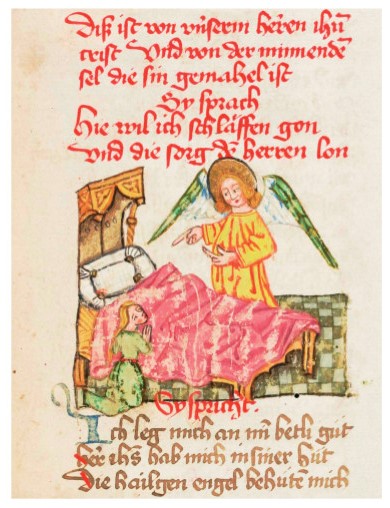 Diß ist von vnserm herren ihū
crist Vnd von der minnendē
sel die sin gemahel ist
Sy sprach
Hie wil ich schlǎffen gon
vnd die sorg dē herren lon
Sy spricht.
Ich leg mich an mī betli gůt
her ihs hab mich in siner hůt
Die hailgen engel behůtē mich